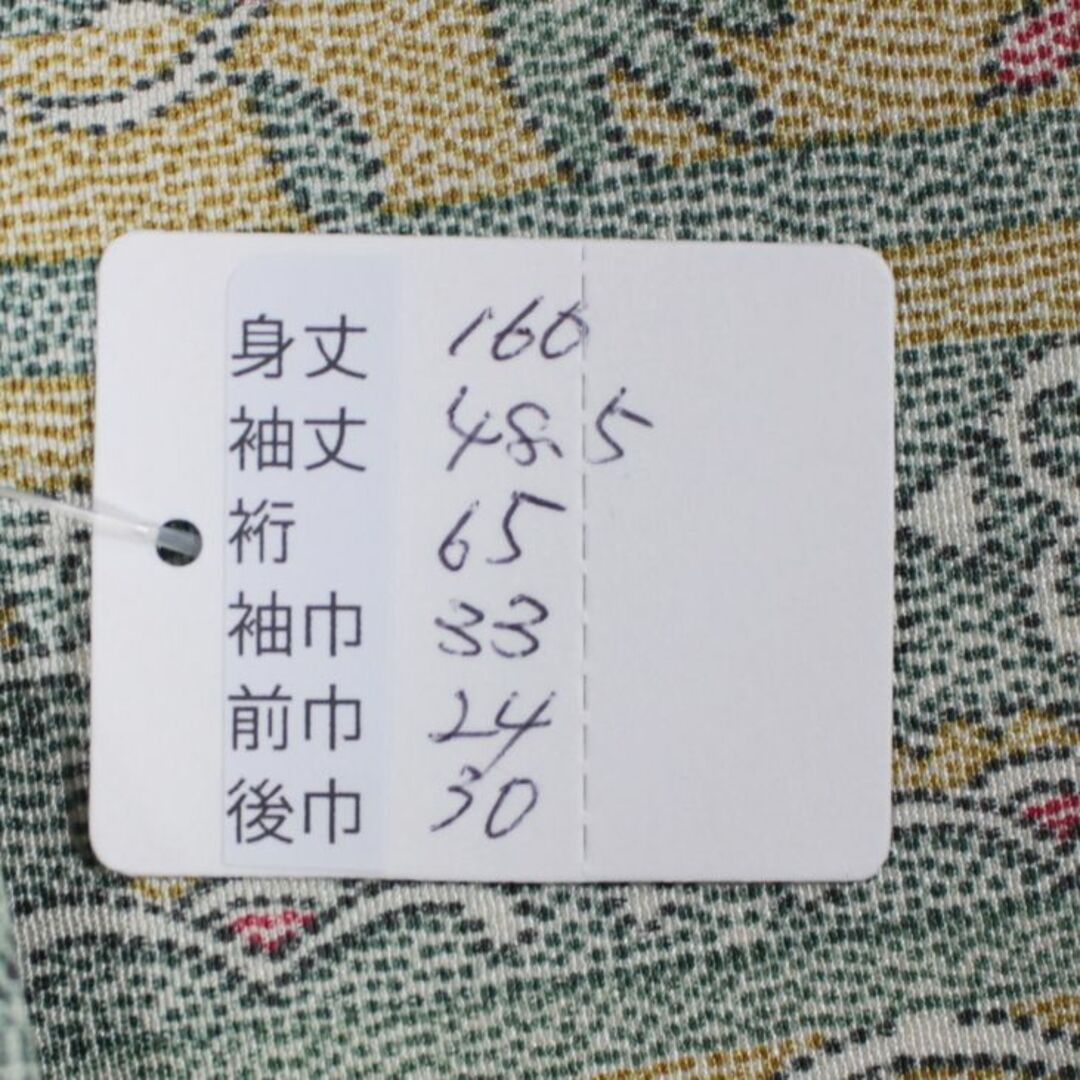 身丈 160
袖丈 48.5
裄 65
袖巾 33
前巾 24
後巾 30